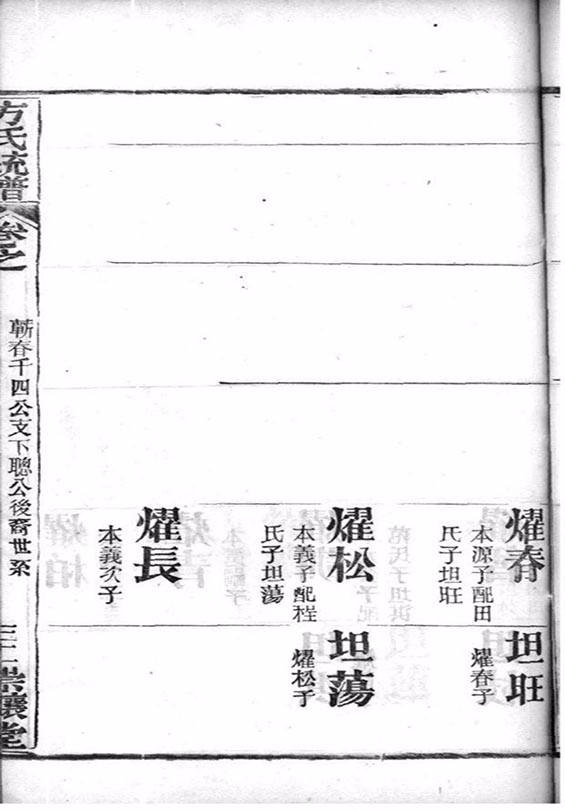 燿春
本源子配田
氏子坦旺
燿松
本義子配程
氏子坦蕩
燿長
本義次子
坦旺
燿春子
坦蕩
燿松子
方氏統譜
卷之
蘄春千四公支下聰公後裔世系